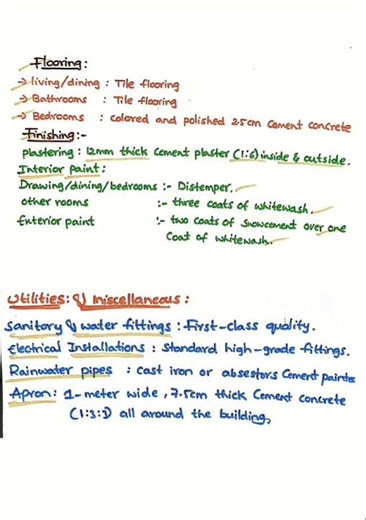 Flooring :
→ living/dining : Tile flooring
→ Bathrooms : Tile flooring
→ Bedrooms : colored and polished 25cm cement concrete
Finishing :-
plastering : 12mm thick cement plaster (1:6) inside & outside.
Interior paint :
Drawing/dining/bedrooms :- Distemper.
other rooms :- three coats of whitewash.
Exterior paint :- two coats of snowcement over one
coat of whitewash.
Utilities : & Miscellaneous :
Sanitary & water fittings : First-class quality.
Electrical Installations : Standard high-grade fittings.
Rainwater pipes : cast iron or absestors cement painted
Apron : 1-meter wide, 7.5cm thick cement concrete
(1:3:) all around the building,